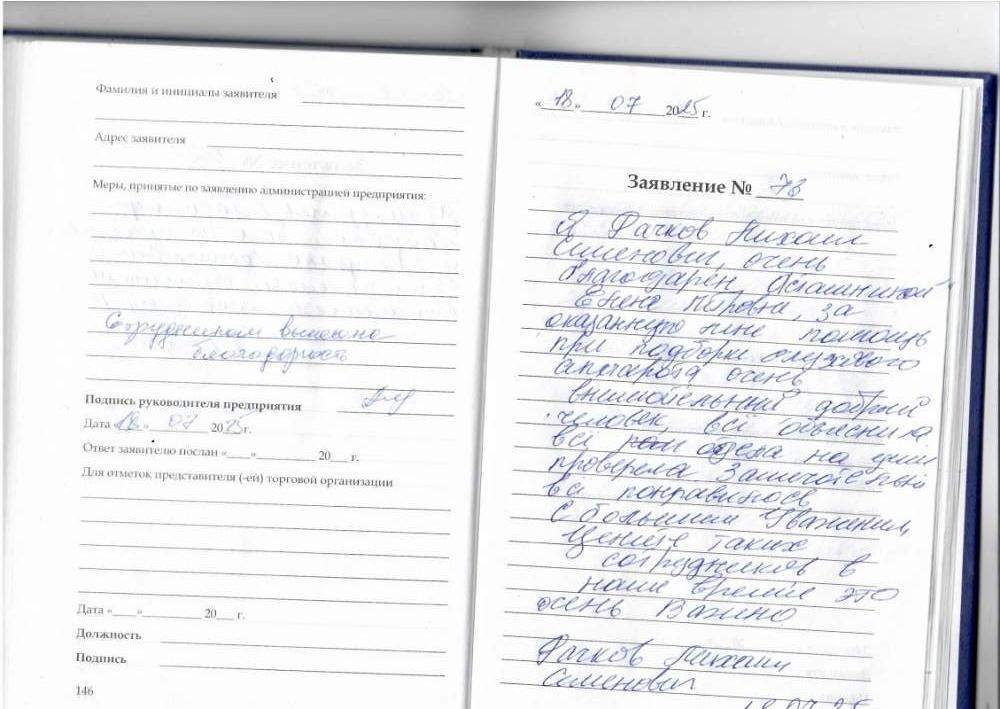 Фамилия и инициалы заявителя
Адрес заявителя
Меры, принятые по заявлению администрацией предприятия:
Сотрудникам вынесена
благодарность
Подпись руководителя предприятия
Дата «18» 07 2025 г.
Ответ заявителю послан «___»__________ 20___ г.
Для отметок представителя (-ей) торговой организации
Дата «___»__________ 20___ г.
Должность
Подпись
146
«18» 07 2025 г.
Заявление № 78
Я Рачков Михаил
Семенович, очень
благодарен
Елене Петровне, за
оказанную мне помощь
при подборе слухового
аппарата очень
внимательный добрый
человек, всё объяснила
всё на уши
проверела Замечательно
всё понравилось
С большим Уважением,
Цените таких
сотрудников в
наше время это
очень Важно
Рачков Михаил
Семенович
18.07.25